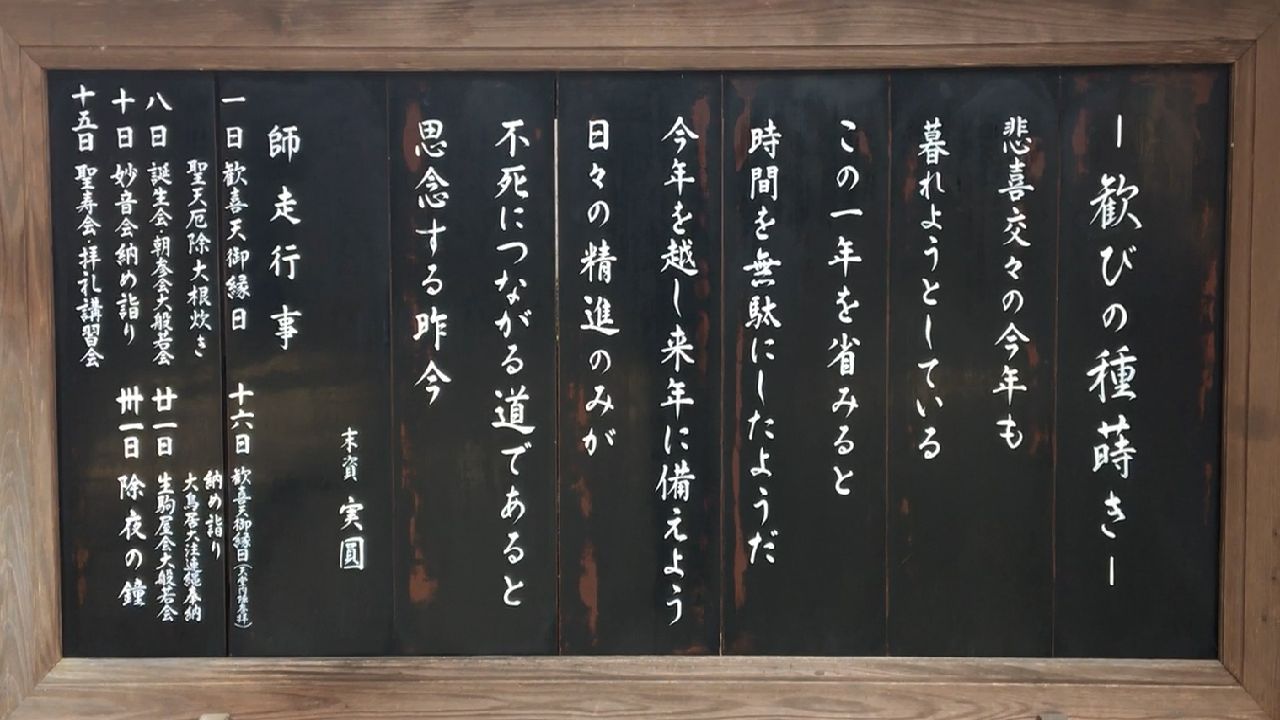 ー歓びの種蒔きー
悲喜交々の今年も
暮れようとしている
この一年を省みると
時間を無駄にしたようだ
今年を越し来年に備えよう
日々の精進のみが
不死につながる道であると
思念する昨今
末資 実圓
師走行事
一日 歓喜天御縁日
聖天厄除大根炊き
八日 誕生会・朝参会大般若会
十日 妙音会納め詣り
十五日 聖寿会・拝礼講習会
十六日 歓喜天御縁日
納め詣り
大鳥居大注連縄奉納
廿一日 生駒屋会大般若会
卅一日 除夜の鐘